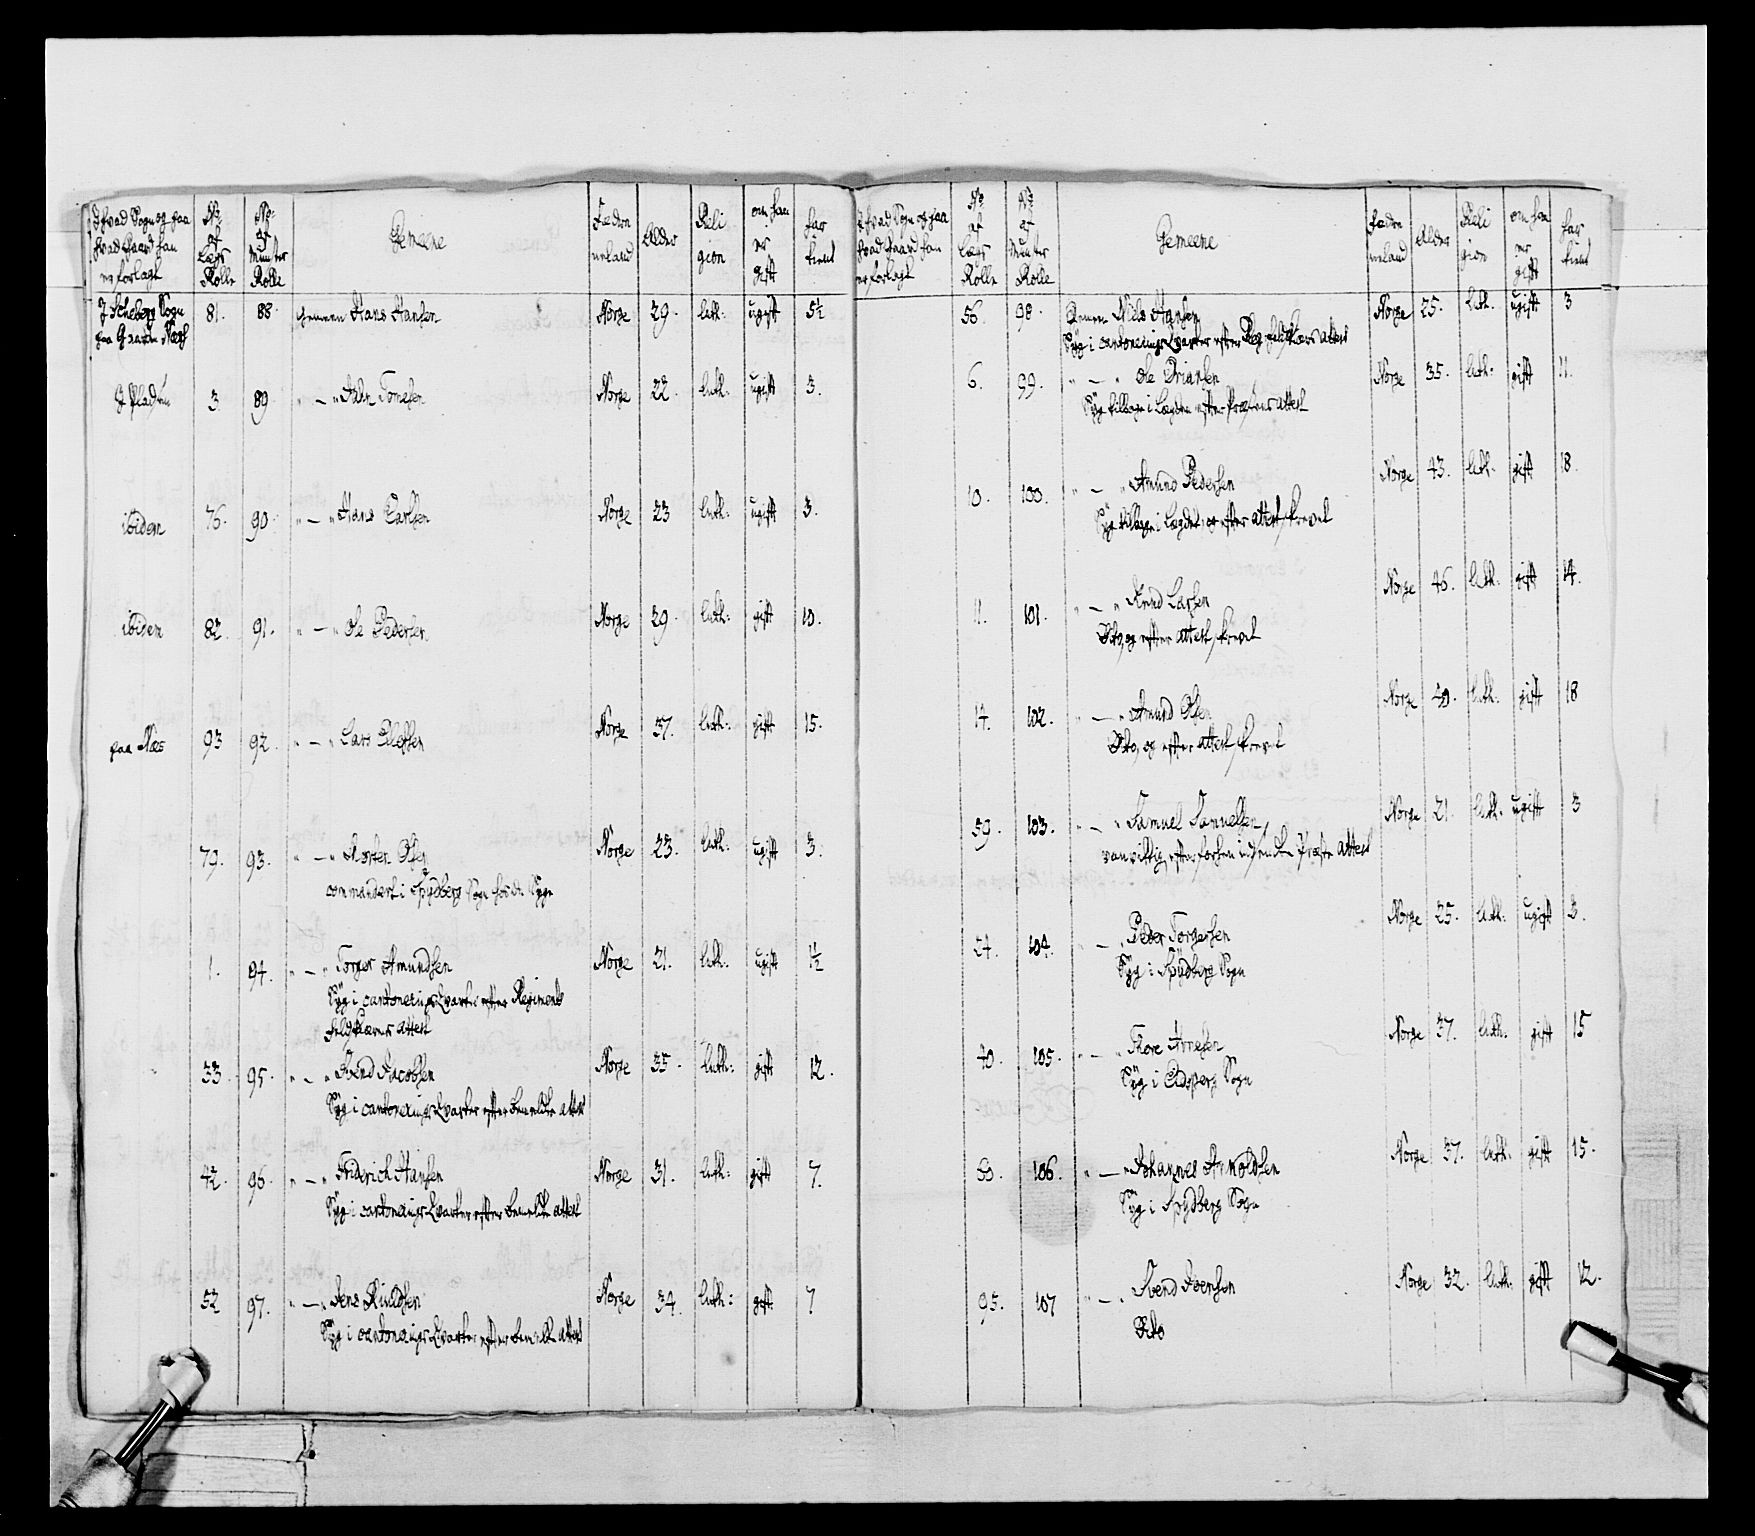 I hvad Sogn og paa
hvad Gaard han
er forlagt
No
af
Lægs
Rolle
No
af
Munster
Rolle
Gemeene
Fædre
neland
Alder
Reli
gion
om han
er
gift
har
tient
I Skieberg Sogn
paa Gaarden Næs 81. 88. Gemeen Hans Hansen Norge 29. luth: ugift 5½
3. 89 " — " Tomesen Norge 22. luth: ugift 3.
ibidem 76. 90. " — " Hans Carlsen Norge 23 luth: ugift 3.
ibidem 82. 91. " — " Ole Pedersen Norge 29. luth: gift 10.
paa Næs 93 92. " — " Lars Norge 37. luth: gift 15.
79. 93. " — " Morten Olsen Norge 23. luth: ugift 3.
commandert i Spydberg Sogn hos de Syge
1. 94. " — " Torger Amundsen Norge 21. luth: ugift 1½
Syg i cantonerings Qvarter efter Regiments
feldskiærens attest
33. 95. " — " Svend Jacobsen Norge 35. luth: gift 12.
Syg i cantonerings Qvarter efter bemelte attest
42. 96. " — " Friderich Hansen Norge 31. luth: gift 7.
Syg i cantonerings Qvarter efter bemelte attest
52 97. " — " Jens Norge 34. luth: gift 7
Syg i cantonerings Qvarter efter bemelte attest
I hvad Sogn og paa
hvad Gaard han
er forlagt
No
af
Lægs
Rolle
No
af
Munster
Rolle
Gemeene
Fædre
neland
Alder
Reli
gion
om han
er
gift
har
tient
56. 98. Gemeen Niels Hansen Norge 25. luth. ugift 3
Syg i cantonerings Qvarter efter Reg. feldskiærs attest
6. 99. " — " Ole Norge 35. luth: gift 11.
Syg tilbage i Lægden efter Præstens attest
10. 100. " — " Amund Pedersen Norge 43. luth. gift 18.
Syg tilbage i Lægdet, og efter attest skrevet
11. 101. " — " Larsen Norge 46. luth. gift 14.
Dito, og efter attest skrevet
14. 102. " — " Amund Olsen Norge 40. luth. gift 18
Dito, og efter attest skrevet
59. 103. " — " Samuel Samuelsen, Norge 21. luth. ugift 3
vanvittig, efter forhen indsendte Præste attest
54. 104. " — " Peder Torgersen Norge 25. luth. ugift 3.
Syg i Spydberg Sogn
40. 105. " — " Tore Arnesen Norge 37. luth. gift 15
Syg i Eidsberg Sogn
106. " — " Johannes Arnoldsen Norge 37. luth. gift 15.
Syg i Spydberg Sogn
95. 107 " — " Svend Svensen Norge 32. luth. gift 12.
Dito